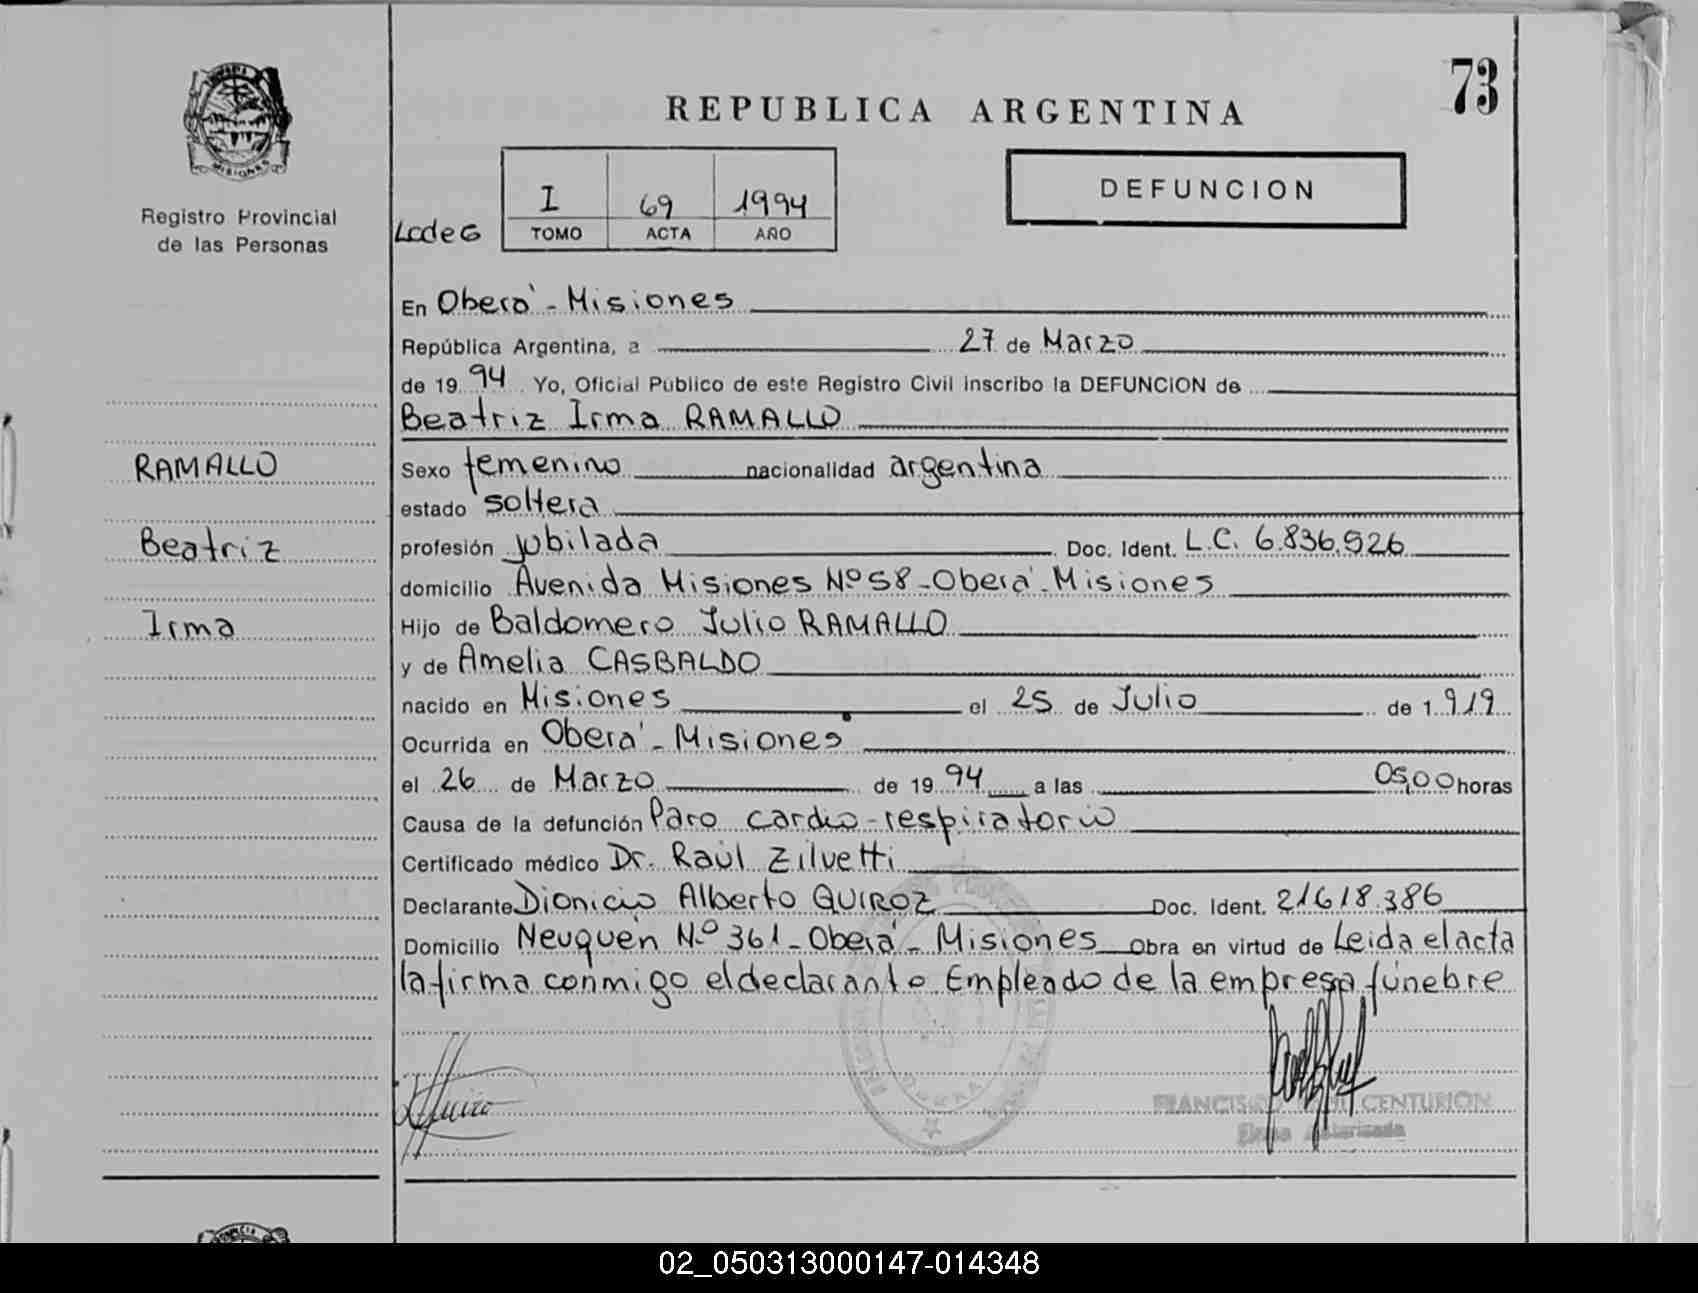 73
REPUBLICA ARGENTINA
MISIONES
Registro Provincial
de las Personas
DEFUNCION
I 69 1994
TOMO ACTA AÑO
En Oberá - Misiones
República Argentina, a 27 de Marzo
de 19 94 Yo, Oficial Publico de este Registro Civil inscribo la DEFUNCION de
Beatriz Irma RAMALLO
RAMALLO
Beatriz
Irma
Sexo femenino nacionalidad argentina
estado soltera
profesión jubilada Doc. Ident. L.C. 6.836.926
domicilio Avenida Misiones Nº 58 - Oberá - Misiones
Hijo de Baldomero Julio RAMALLO
y de Amelia CASBALDO
nacido en Misiones el 25 de Julio de 1.919
Ocurrida en Oberá - Misiones
el 26 de Marzo de 19 94 a las 05,00 horas
Causa de la defunción Paro cardio-respiratorio
Certificado médico Dr. Raúl Zilvetti
Declarante Dionicio Alberto QUIROZ Doc. Ident. 21618.386
Domicilio Neuquén Nº 361 - Oberá - Misiones Obra en virtud de Leida el acta
la firma conmigo el declarante Empleado de la empresa fúnebre
CENTURION
02_050313000147-014348